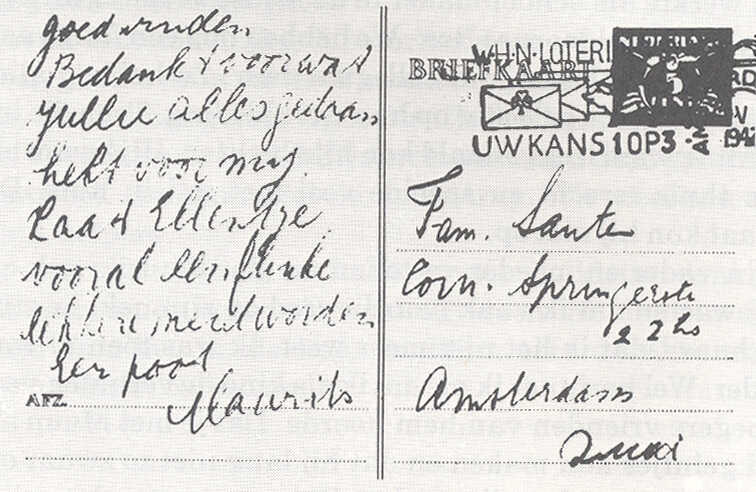 goed vrinden
Bedankt voor wat
jullie alles gedaan
hebt voor mij
Laat Ellentje
vooral een flinke
lekkere meid worden
Een poot
Maurits
AFZ.
W.H.N-LOTERI
BRIEFKAART
UW KANS 10P3
NEDERLAND
5
194
Fam. Santen
Corn. Springerstr
22 hs
Amsterdam
Zuid